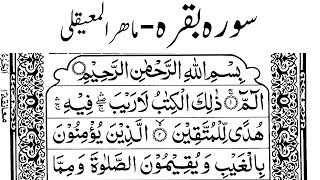 سورہ بقرہ - ماھر المعیقلی
بِسْمِ اللّٰهِ الرَّحْمٰنِ الرَّحِيْمِ
الٓمّٓ ۚ ذٰلِكَ الْكِتٰبُ لَا رَيْبَ ۛۖ فِيْهِ ۛۚ
هُدًى لِّلْمُتَّقِيْنَ ۙ الَّذِيْنَ يُؤْمِنُوْنَ
بِالْغَيْبِ وَ يُقِيْمُوْنَ الصَّلٰوةَ وَ مِمَّا